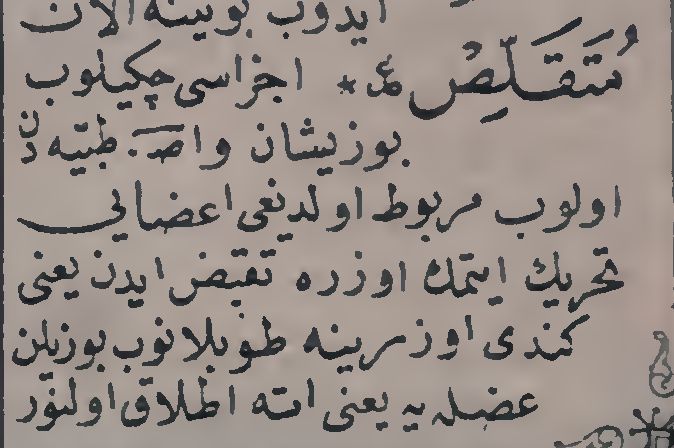 ايدوب بوينه آلان
مُتَقَلِّصْ ع * اجزاسى چكيلوب
بوزيشان واصـ. طبّيه دن
اولوب مربوط اولديغى اعضايى
تحريك ايتمك اوزره تقبض ايدن يعنى
كندى اوزرينه طوپلانوب بوزيلن
عضله يه يعنى اته اطلاق اولنور